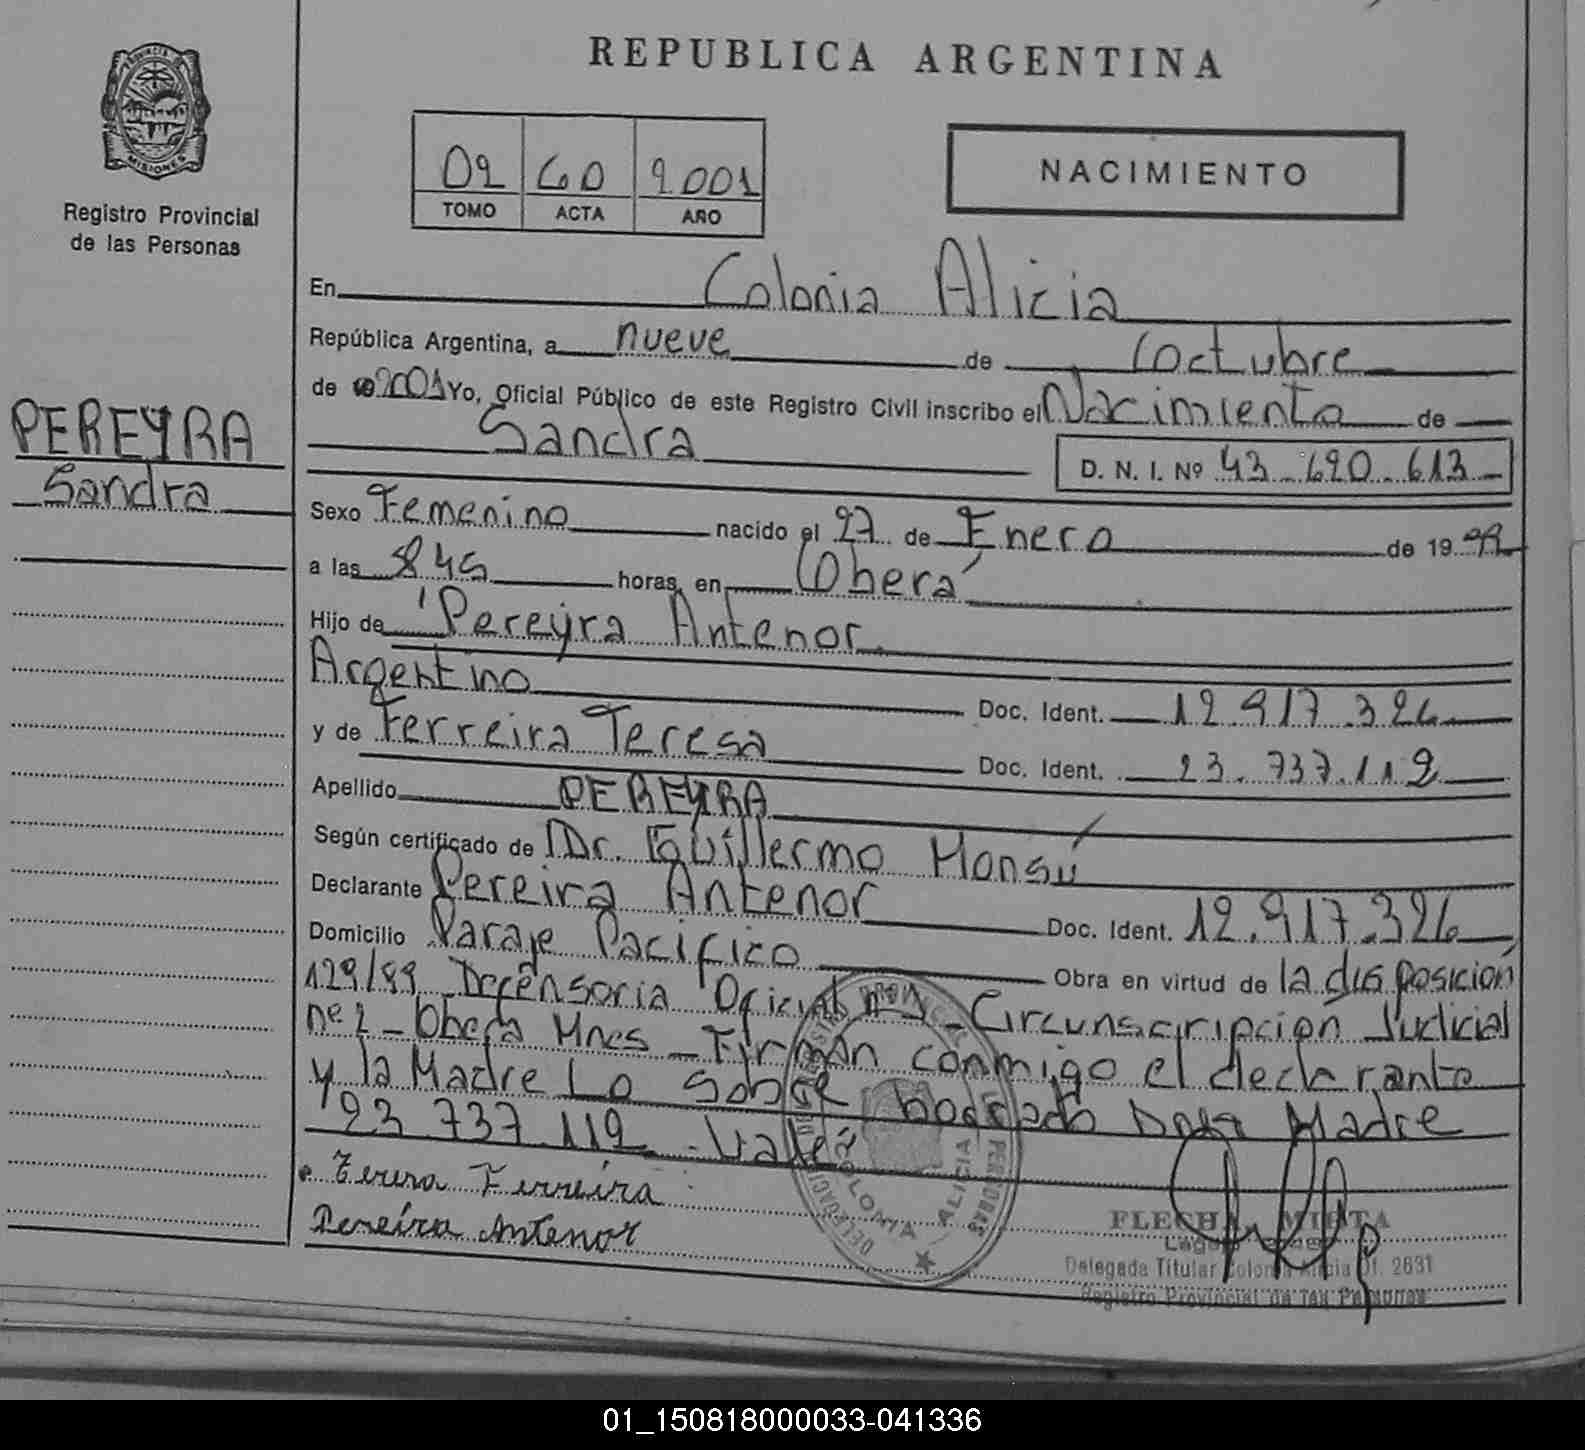 REPUBLICA ARGENTINA
PROVINCIA DE
MISIONES
Registro Provincial
de las Personas
02 60 2001
TOMO ACTA AÑO
NACIMIENTO
PEREYRA
Sandra
En Colonia Alicia
República Argentina, a nueve de Octubre
de 2001 Yo, Oficial Público de este Registro Civil inscribo el Nacimiento de
Sandra D. N. I. Nº 43.620.613
Sexo Femenino nacido el 27 de Enero de 19 99
a las 845 horas, en Oberá
Hijo de Pereyra Antenor
Argentino Doc. Ident. 12.917.326
y de Ferreira Teresa Doc. Ident. 23.737.112
Apellido PEREYRA
Según certificado de Dr. Guillermo Monsú
Declarante Pereira Antenor Doc. Ident. 12.917.326
Domicilio Paraje Pacifico Obra en virtud de la disposición
129/99 Defensoria Oficial nº 1 - Circunscripcion Judicial
nº 2 - Obera Mnes - Firman conmigo el declarante
y la Madre Lo sobre borrado Madre
23 737 112 - Vale
Teresa Ferreira
Pereira Antenor
COLONIA ALICIA
FLECHA MIRTA
Delegada Titular Colonia Alicia Of. 2631
Registro Provincial de las Personas
01_150818000033-041336